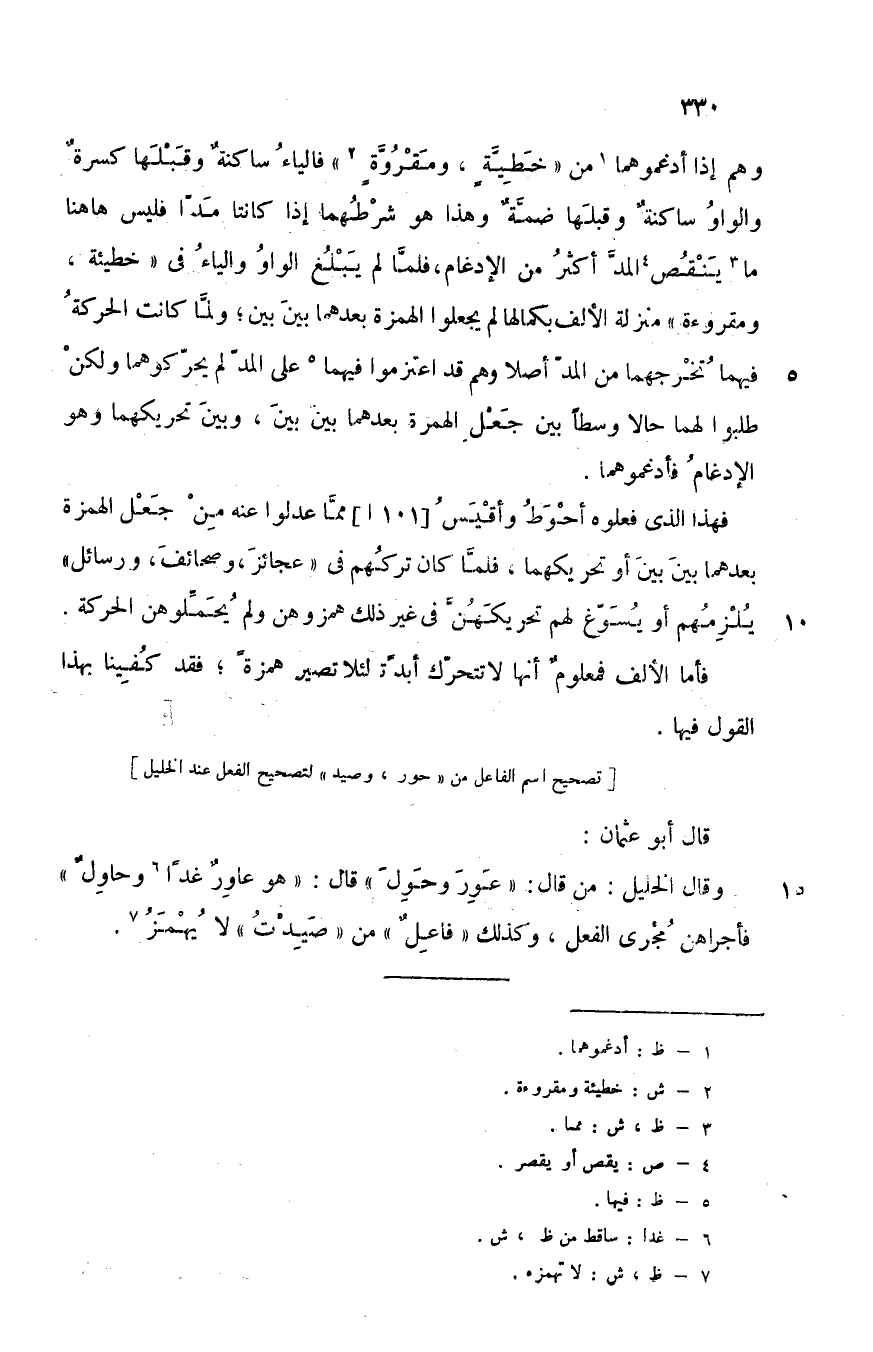 ٣٣٠
وهم إذا أدغموهما ١ من « خَطِيَّةٍ ، ومَقْرُوَّةٍ ٢ » فالياءُ ساكنةٌ وقَبْلَها كسرةٌ
والواوُ ساكنةٌ وقبلَها ضمَّةٌ وهذا هو شرْطُهما إذا كانتا مَدًّا فليس هاهنا
ما ٣ يَنْقُص ٤ المدَّ أكثرُ من الإدغام، فلمَّا لم يَبْلُغ الواوُ والياءُ فى « خطيئة ،
ومقروءة » منزلة الألف بكمالها لم يجعلوا الهمزة بعدهما بينَ بين ؛ ولمَّا كانت الحركةُ
٥ فيهما تُخْرجهما من المدّ أصلا وهم قد اعتزموا فيهما ٥ على المدّ لم يحرّكوهما ولكنْ
طلبوا لهما حالا وسطاً بين جَعْل الهمزة بعدهما بينَ بينَ ، وبينَ تحريكهما وهو
الإدغامُ فأدغموهما .
فهذا الذى فعلوه أحْوَطُ وأقْيَسُ [ ١٠١ ا ] ممَّا عدلوا عنه مِنْ جَعْل الهمزة
بعدهما بينَ بينَ أو تحريكهما ، فلمَّا كان تركُهم فى « عجائزَ ، وصحائفَ ، ورسائل »
١٠ يُلْزِمُهم أو يُسَوّغ لهم تحريكَهُنَّ فى غير ذلك همزوهن ولم يُحَمِّلوهن الحركة .
فأما الألف فمعلومٌ أنها لا تتحرّك أبدًا لئلا تصير همزةً ؛ فقد كُفِينا بهذا
القول فيها .
[ تصحيح اسم الفاعل من « حور ، وصيد » لتصحيح الفعل عند الخليل ]
قال أبو عثمان :
١٥ وقال الخليل : من قال : « عَوِرَ وحَوِلَ » قال : « هو عاوِرٌ غدًا ٦ وحاوِلٌ »
فأجراهن مُجْرى الفعل ، وكذلك « فاعِلٌ » من « صَيِدْتُ » لا يُهْمَزُ ٧ .
١ – ظ : أدغموهما .
٢ – ش : خطيئة ومقروءة .
٣ – ظ ، ش : مما .
٤ – ص : يقص أو يقصر .
٥ – ظ : فيها .
٦ – غدا : ساقط من ظ ، ش .
٧ – ظ ، ش : لا تهمزه .